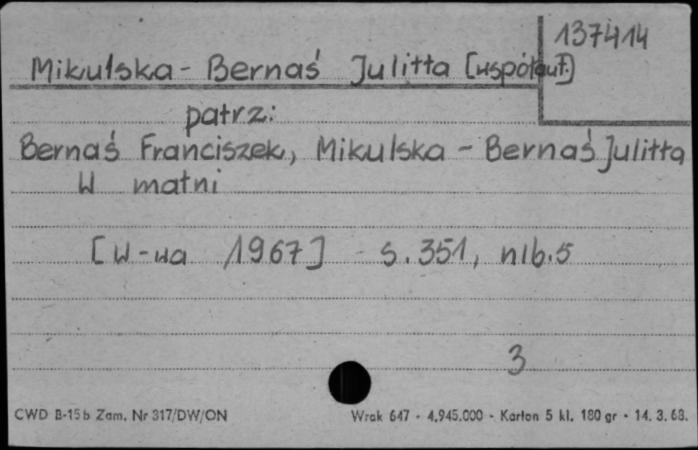 137414
Mikulska - Bernaś Julitta [współaut.]
patrz:
Bernaś Franciszek, Mikulska - Bernaś Julitta
W matni
[W-wa 1967] s. 351, nlb. 5
3
CWD B-15b Zam. Nr 317/DW/ON Wrak 647 - 4,945.000 - Karton 5 kl. 180 gr - 14. 3. 68.